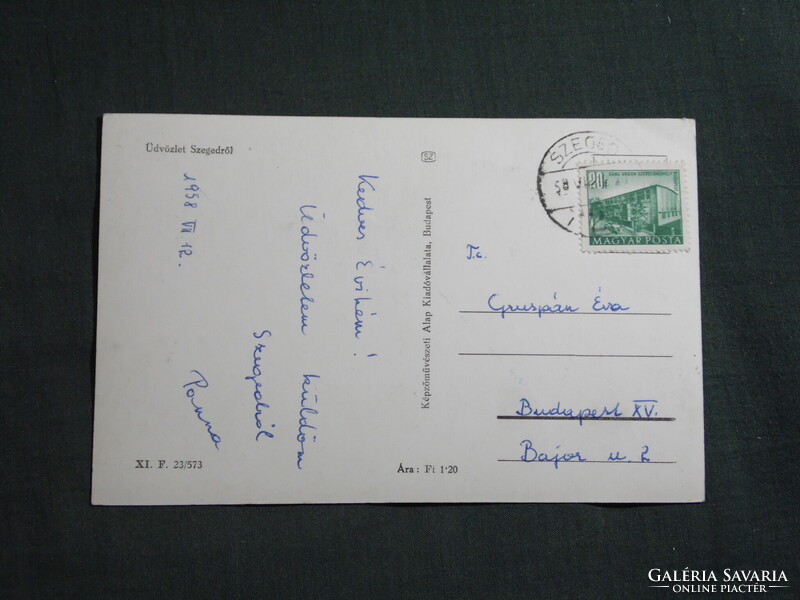 Üdvözlet Szegedről
1958 VII 12.
Kedves Évikém!
Üdvözletem küldöm
Szegedről
Panna
XI. F. 23/573
Képzőművészeti Alap Kiadóvállalata, Budapest
Ára: Ft 1·20
SZEGED
20
MAGYAR POSTA
T.c.
Gruspán Éva
Budapest XV.
Bajor u. 2
GALÉRIA SAVARIA
ONLINE PIACTÉR